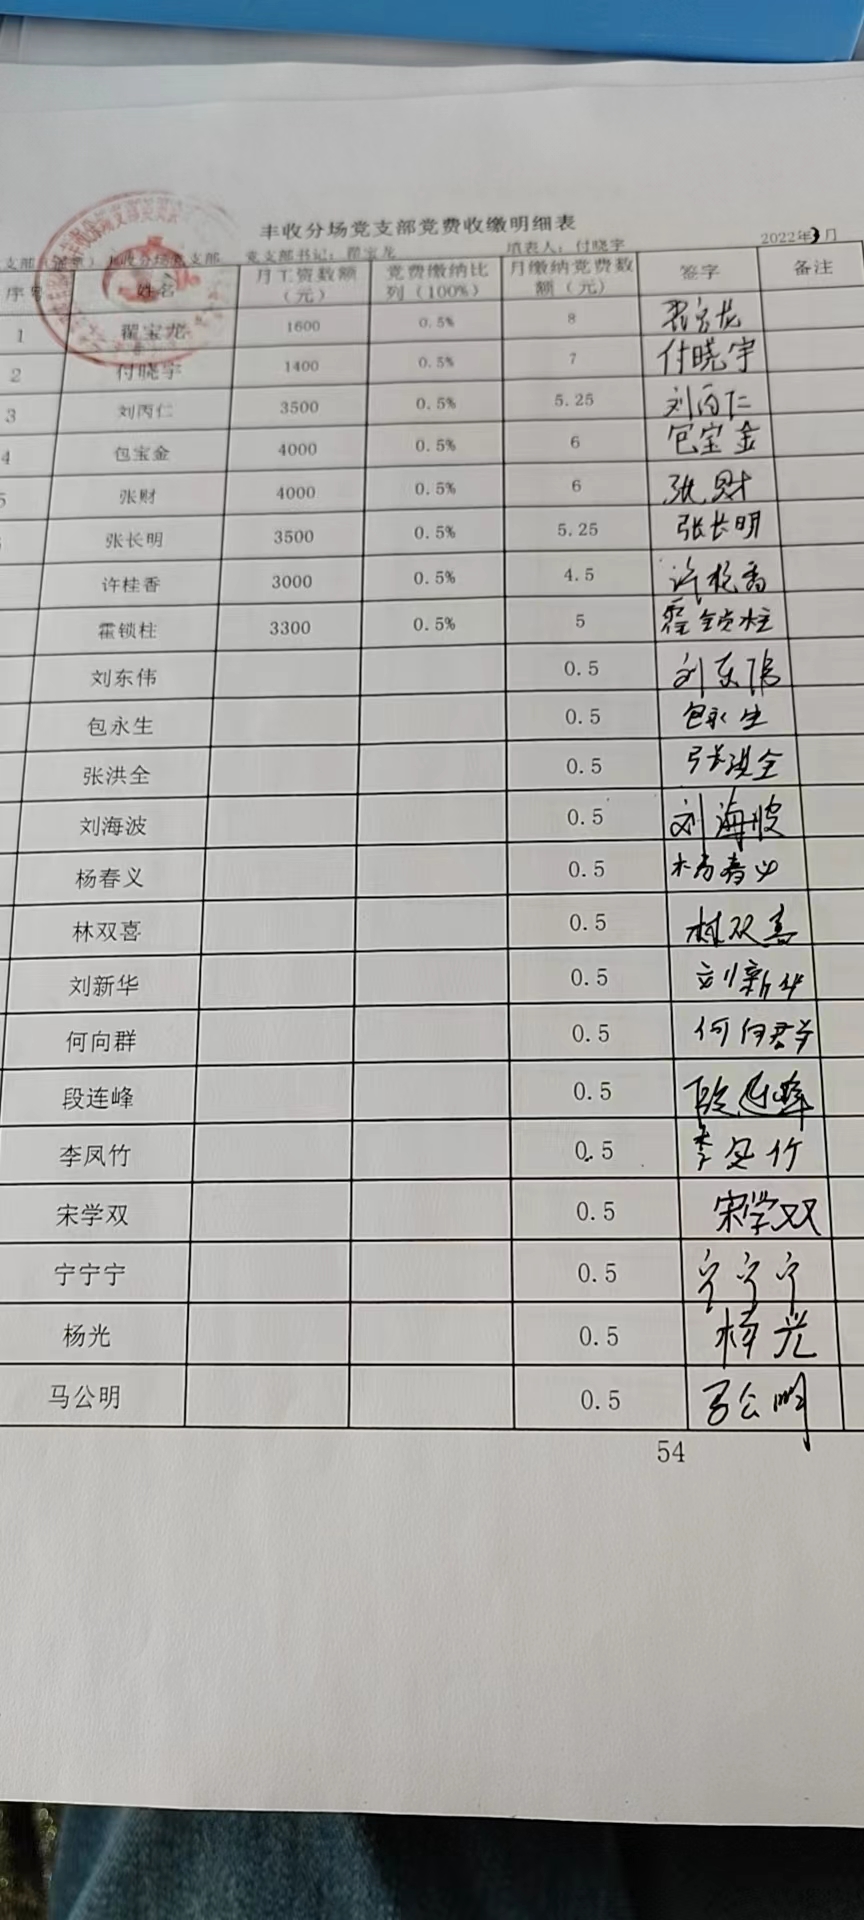 丰收分场党支部党费收缴明细表
丰收分场党支部 党支部书记：翟宝龙 填表人：付晓宇 2022年3月
序号 姓名 月工资数额（元） 党费缴纳比列（100%） 月缴纳党费数额（元） 签字 备注
1 翟宝龙 1600 0.5% 8 翟宝龙
2 付晓宇 1400 0.5% 7 付晓宇
3 刘丙仁 3500 0.5% 5.25 刘丙仁
4 包宝金 4000 0.5% 6 包宝金
5 张财 4000 0.5% 6 张财
张长明 3500 0.5% 5.25 张长明
许桂香 3000 0.5% 4.5 许桂香
霍锁柱 3300 0.5% 5 霍锁柱
刘东伟 0.5 刘东伟
包永生 0.5 包永生
张洪全 0.5 张洪全
刘海波 0.5 刘海波
杨春义 0.5 杨春义
林双喜 0.5 林双喜
刘新华 0.5 刘新华
何向群 0.5 何向群
段连峰 0.5 段连峰
李凤竹 0.5 李凤竹
宋学双 0.5 宋学双
宁宁宁 0.5 宁宁宁
杨光 0.5 杨光
马公明 0.5 马公明
54